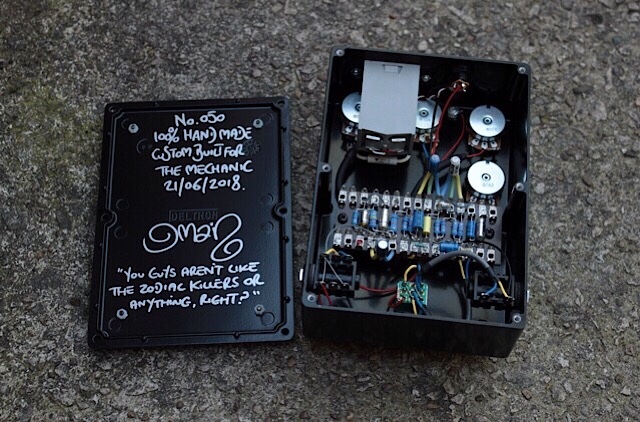 No. 050
100% HANDMADE
CUSTOM BUILT FOR
THE MECHANIC
21/06/2018.
DELTRON
"YOU GUYS AREN'T LIKE
THE ZODIAC KILLERS OR
ANYTHING, RIGHT?"